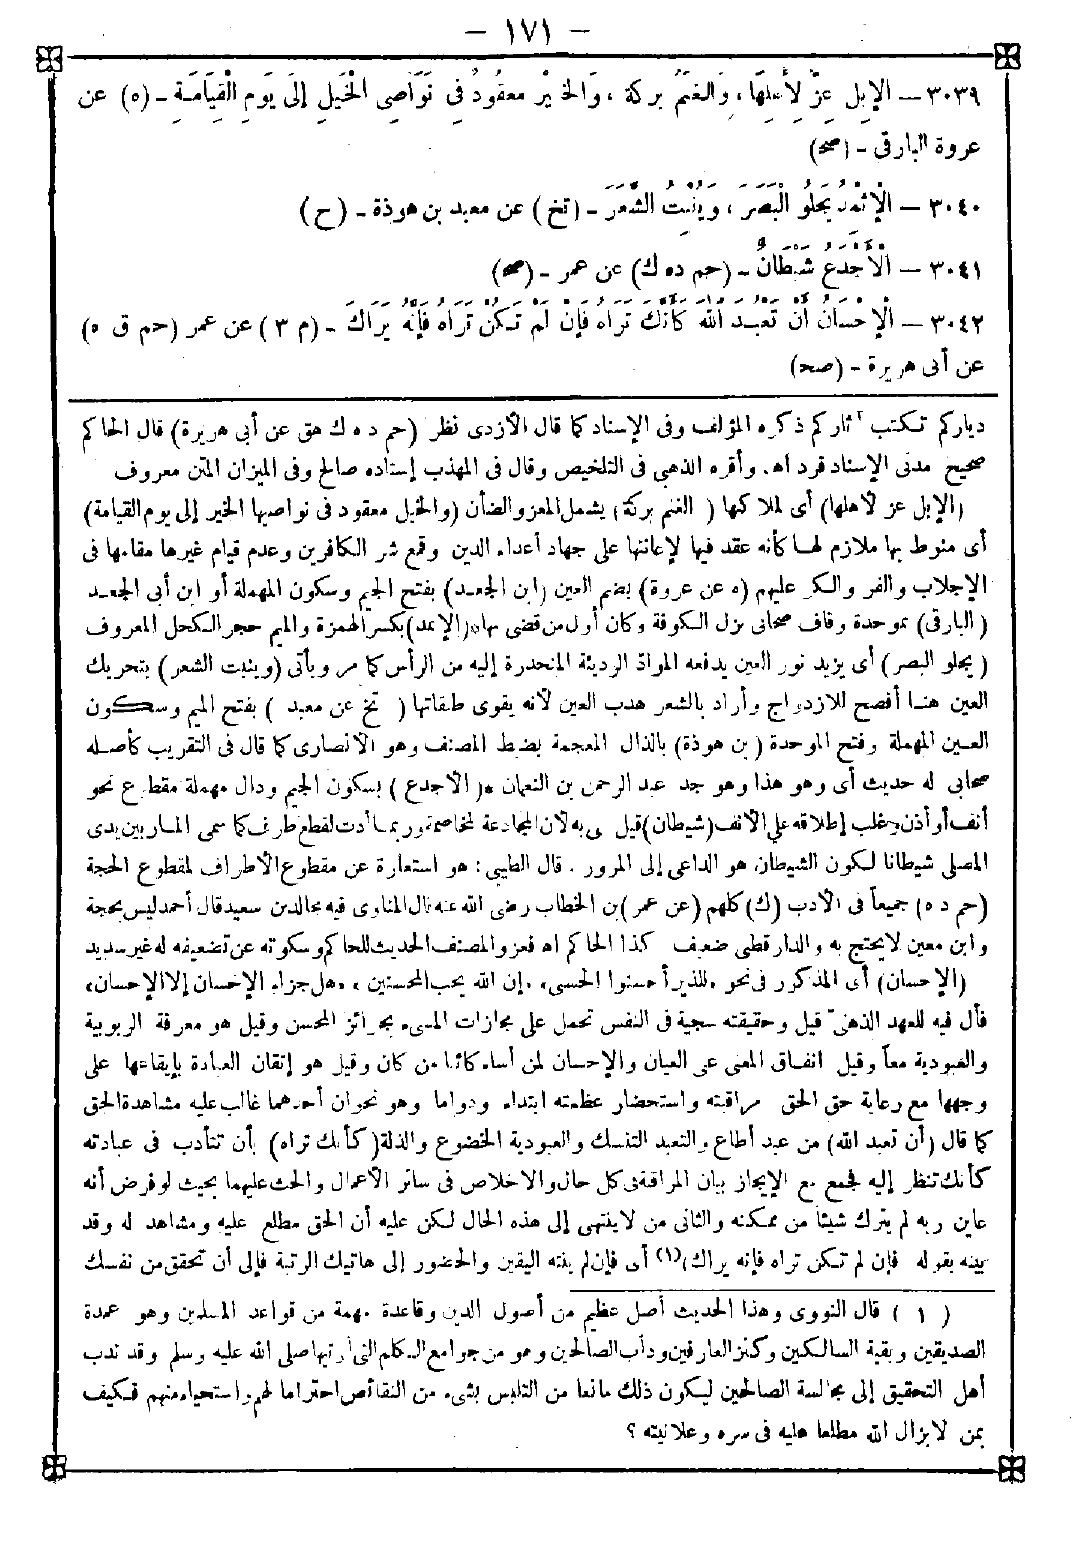 - ١٧١ -
٣٠٣٩ — الْإِبِلُ عِزٌّ لِأَهْلِهَا، وَالْغَنَمُ بَرَكَةٌ، وَالْخَيْرُ مَعْقُودٌ فِى نَوَاصِى الْخَيْلِ إِلَى يَوْمِ الْقِيَامَةِ - (ه) عن
عروة البارقى - (صح)
٣٠٤٠ — الْإِثْمِدُ يَجْلُو الْبَصَرَ، وَيُنْبِتُ الشَّعَرَ - (تخ) عن معبد بن هوذة - (ح)
٣٠٤١ — الْأَجْدَعُ شَيْطَانٌ - (حم د ه ك) عن عمر - (صح)
٣٠٤٢ — الْإِحْسَانُ أَنْ تَعْبُدَ اللهَ كَأَنَّكَ تَرَاهُ فَإِنْ لَمْ تَكُنْ تَرَاهُ فَإِنَّهُ يَرَاكَ - (م ٣) عن عمر (حم ق ه)
عن أبى هريرة - (صح)
دياركم تكتب آثاركم ذكره المؤلف وفى الإسناد كما قال الأزدى نظر (حم د ه ك هق عن أبى هريرة) قال الحاكم
صحيح مدنى الإسناد قرد اهـ. وأقره الذهبى فى التلخيص وقال فى المهذب إسناده صالح وفى الميزان المتن معروف
(الإبل عز لأهلها) أى لملاكها (الغنم بركة) يشمل المعز والضأن (والخيل معقود فى نواصيها الخير إلى يوم القيامة)
أى منوط بها ملازم لها كأنه عقد فيها لإعانتها على جهاد أعداء الدين وقمع شر الكافرين وعدم قيام غيرها مقامها فى
الإجلاب والفر والكر عليهم (ه عن عروة) بضم العين (ابن الجعد) بفتح الجيم وسكون المهملة أو ابن أبى الجعد
(البارقى) بموحدة وقاف صحابى نزل الكوفة وكان أول من قضى بها *(الإثمد) بكسر الهمزة والميم حجر الكحل المعروف
(يجلو البصر) أى يزيد نور العين بدفعه المواد الرديئة المنحدرة إليه من الرأس كما مر ويأتى (وينبت الشعر) بتحريك
العين هنا أفصح للازدواج وأراد بالشعر هدب العين لأنه يقوى طبقاتها (تخ عن معبد) بفتح الميم وسكون
العين المهملة وفتح الموحدة (بن هوذة) بالذال المعجمة بضبط المصنف وهو الأنصارى كما قال فى التقريب كأصله
صحابى له حديث أى وهو هذا وهو جد عبد الرحمن بن النعمان *(الأجدع) بسكون الجيم ودال مهملة مقطوع نحو
أنف أو أذن وغلب إطلاقه على الأنف (شيطان) قيل سمى به لأن المجادعة المخاصمة وربما أدت لقطع طرف كما سمى المار بين يدى
المصلى شيطانا لكون الشيطان هو الداعى إلى المرور. قال الطيبى: هو استعارة عن مقطوع الأطراف لمقطوع الحجة
(حم د ه) جميعاً فى الأدب (ك) كلهم (عن عمر) بن الخطاب رضى الله عنه قال المناوى فيه مجالد بن سعيد قال أحمد ليس بحجة
وابن معين لا يحتج به والدارقطنى ضعيف كذا الحاكم اهـ فعزو المصنف الحديث للحاكم وسكوته عن تضعيفه له غير سديد
(الإحسان) أى المذكور فى نحو «للذين أحسنوا الحسنى»، «إن الله يحب المحسنين»، «هل جزاء الإحسان إلا الإحسان»،
فأل فيه للعهد الذهنى قيل وحقيقته سجية فى النفس تحمل على مجازات المسىء بجزائز المحسن وقيل هو معرفة الربوبية
والعبودية معاً وقيل انفاق المعنى على العيان والإحسان لمن أساء كائنا من كان وقيل هو إتقان العبادة بإيقاعها على
وجهها مع رعاية حق الحق مراقبته واستحضار عظمته ابتداء ودواما وهو نحوان أحدهما غالب عليه مشاهدة الحق
كما قال (أن تعبد الله) من عبد أطاع والتعبد التنسك والعبودية الخضوع والذلة (كأنك تراه) بأن تتأدب فى عبادته
كأنك تنظر إليه فجمع مع الإيجاز بيان المراقبة فى كل حال والاخلاص فى سائر الأعمال والحث عليهما بحيث لو فرض أنه
عاين ربه لم يترك شيئا من ممكنه والثانى من لا ينتهى إلى هذه الحال لكن عليه أن الحق مطلع عليه ومشاهد له وقد
بينه بقوله فإن لم تكن تراه فإنه يراك)(١) أى فإن لم ينته اليقين والحضور إلى هاتيك الرتبة فإلى أن تحقق من نفسك
(١) قال النووى وهذا الحديث أصل عظيم من أصول الدين وقاعدة مهمة من قواعد المسلمين وهو عمدة
الصديقين وبغية السالكين وكنز العارفين ودأب الصالحين وهو من جوامع الكلم التى أوتيها صلى الله عليه وسلم وقد ندب
أهل التحقيق إلى مجالسة الصالحين ليكون ذلك مانعا من التلبس بشىء من النقائص احتراما لهم واستحياء منهم فكيف
بمن لا يزال الله مطلعا عليه فى سره وعلانيته؟